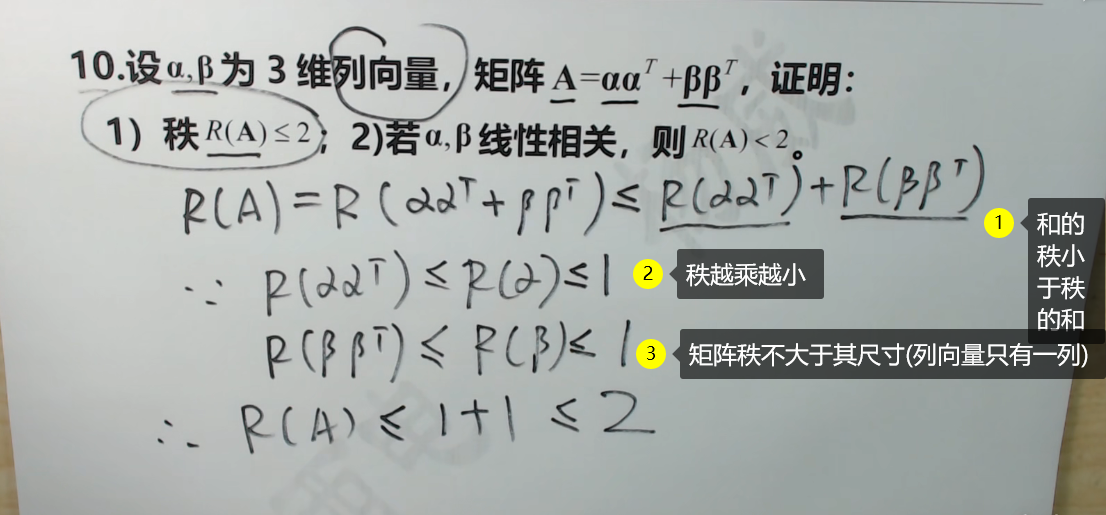 10.设α,β为 3 维列向量，矩阵 A=αα^T+ββ^T，证明：
1）秩 R(A)≤2；2)若α,β线性相关，则R(A)<2。
R(A)=R(αα^T+ββ^T)≤R(αα^T)+R(ββ^T)
1 和的秩小于秩的和
∵ R(αα^T)≤R(α)≤1
2 秩越乘越小
R(ββ^T)≤R(β)≤1
3 矩阵秩不大于其尺寸(列向量只有一列)
∴ R(A)≤1+1≤2